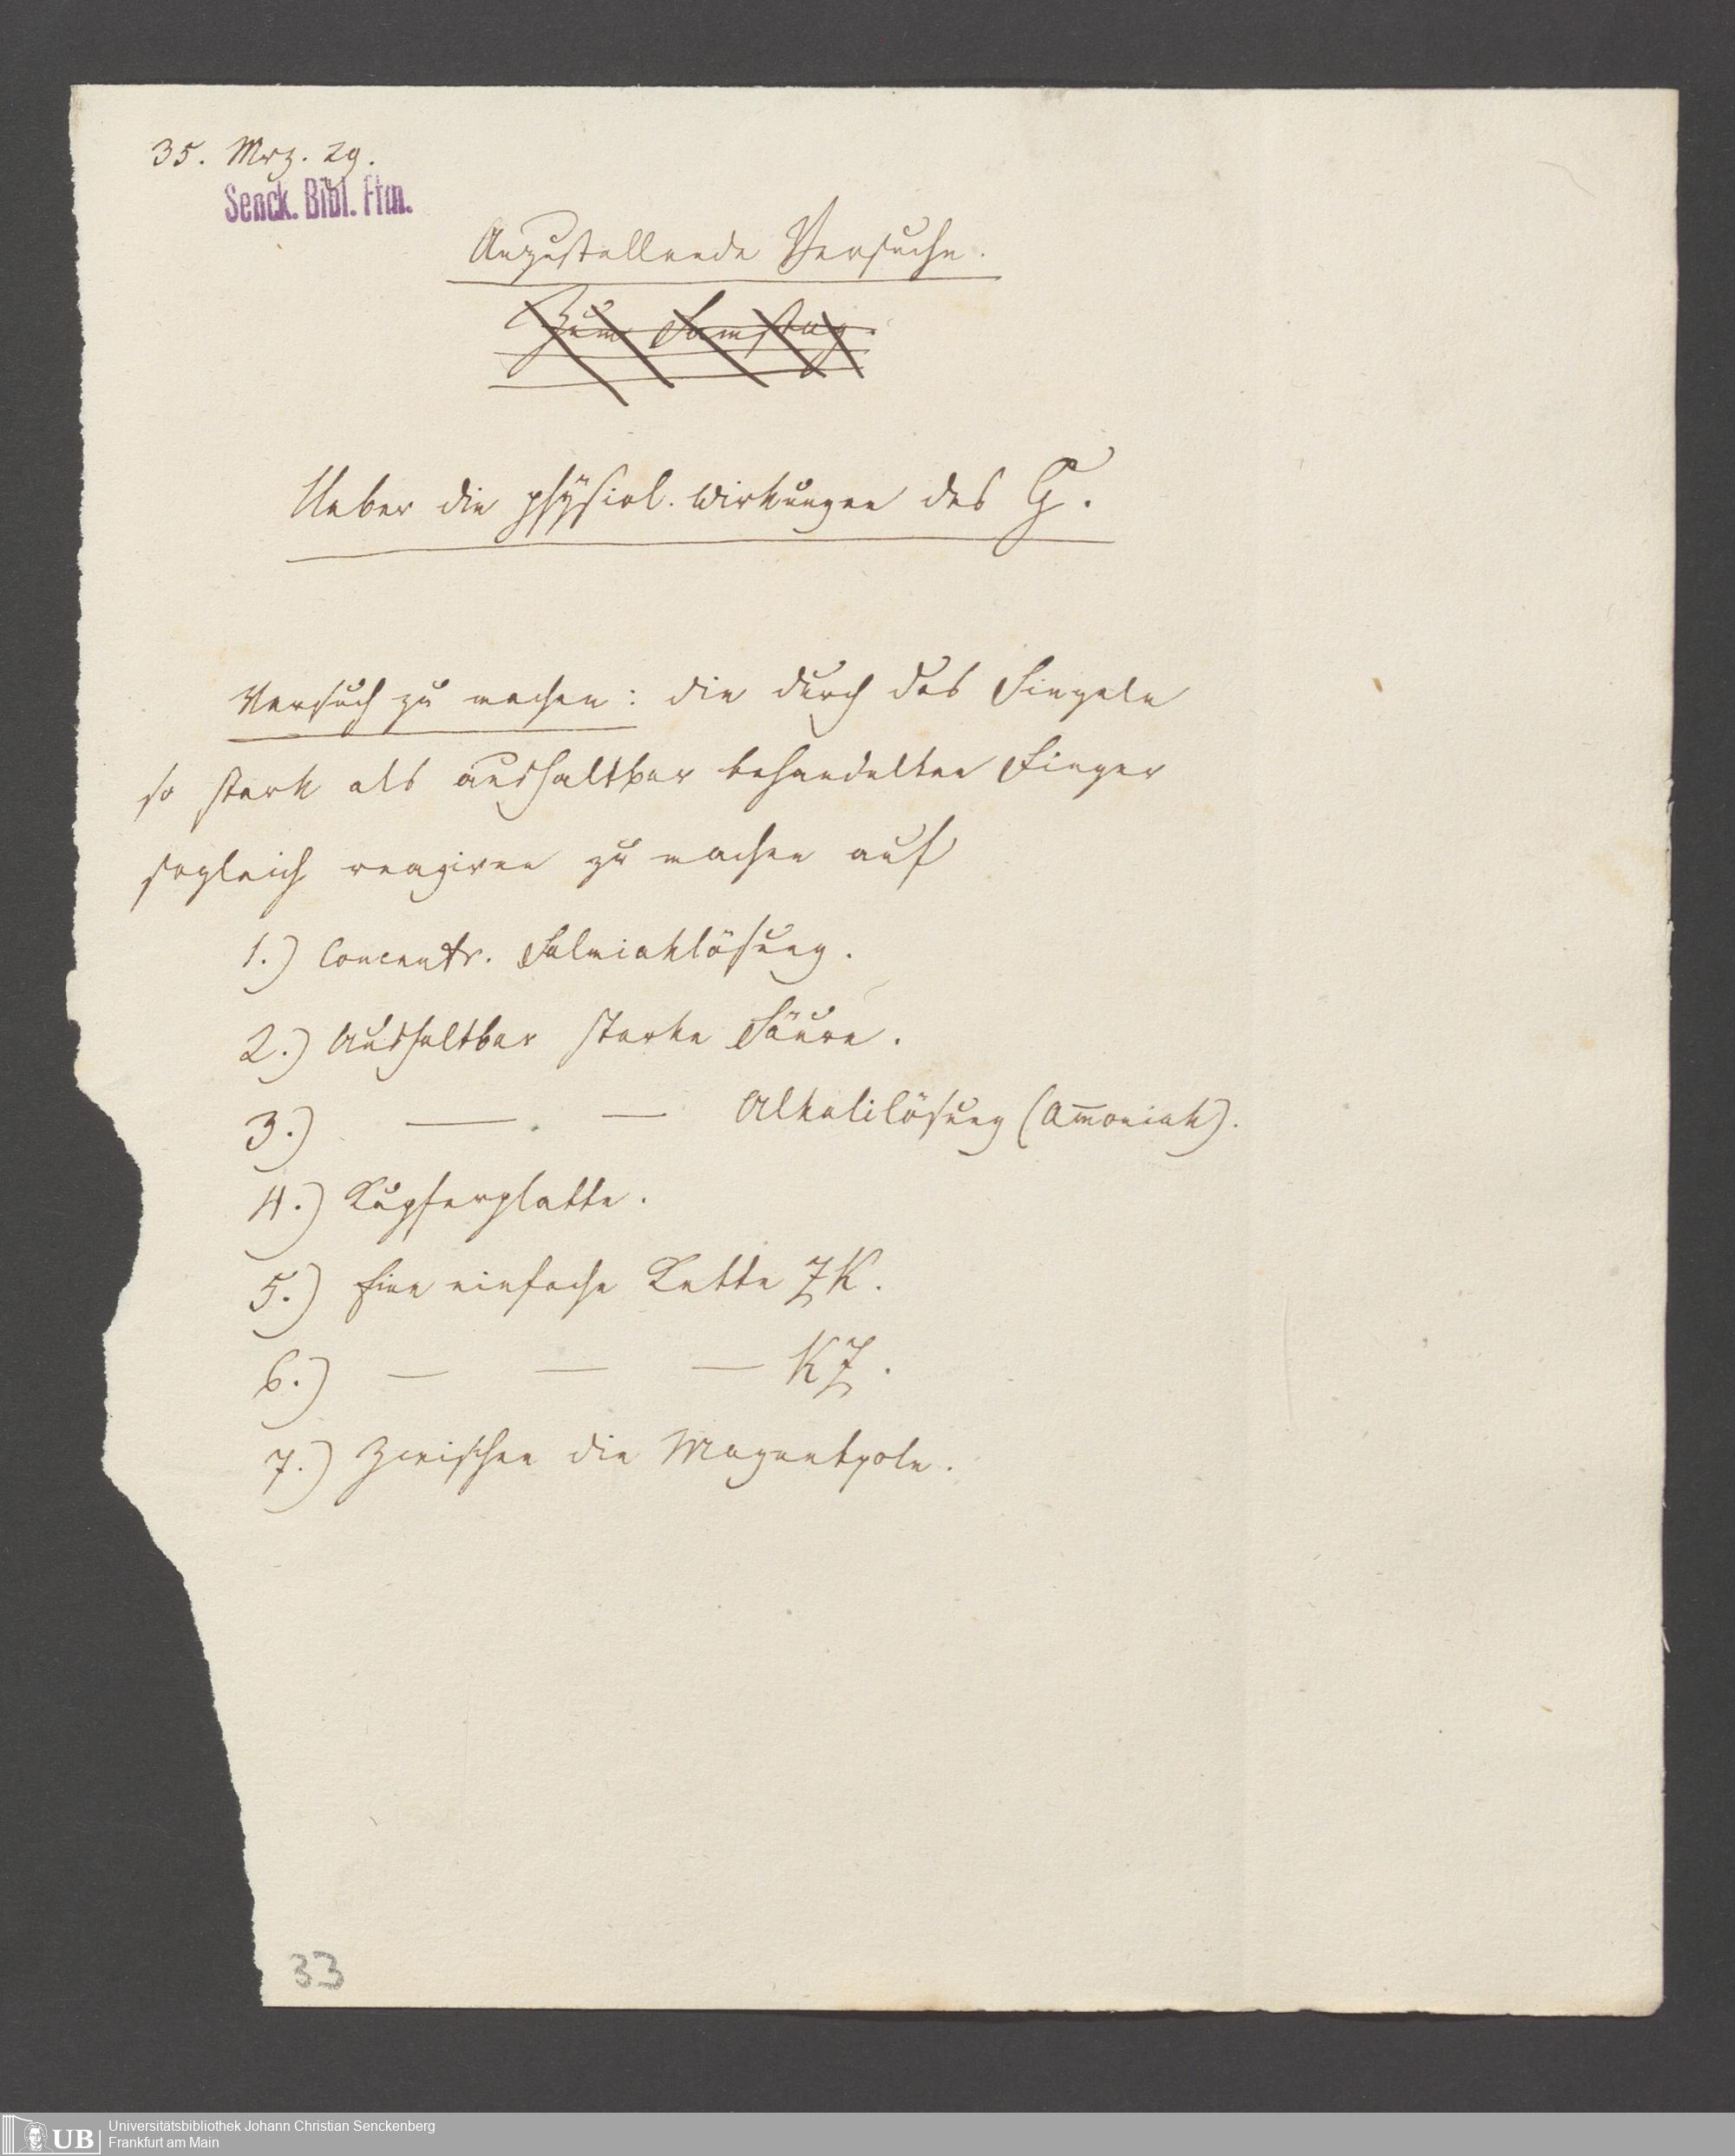 35. Mrz. 29.
Senck. Bibl. Ffm.
Anzustellende Versuche.
Zum Samstag.
Ueber die physiol. Wirkungen des G.
Versuch zu machen: die durch das Singeln
so stark als aushaltbar behandelten Finger
sogleich reagiren zu machen auf
1.) Concentr. Salmiaklösung.
2.) Aushaltbar starke Säure.
3.) — — Alkalilösung (Am̅oniak).
4.) Kupferplatte.
5.) Eine einfache Kette ZK.
6.) — — — KZ.
7.) Zwischen die Magnetpole.
33
UB Universitätsbibliothek Johann Christian Senckenberg
Frankfurt am Main